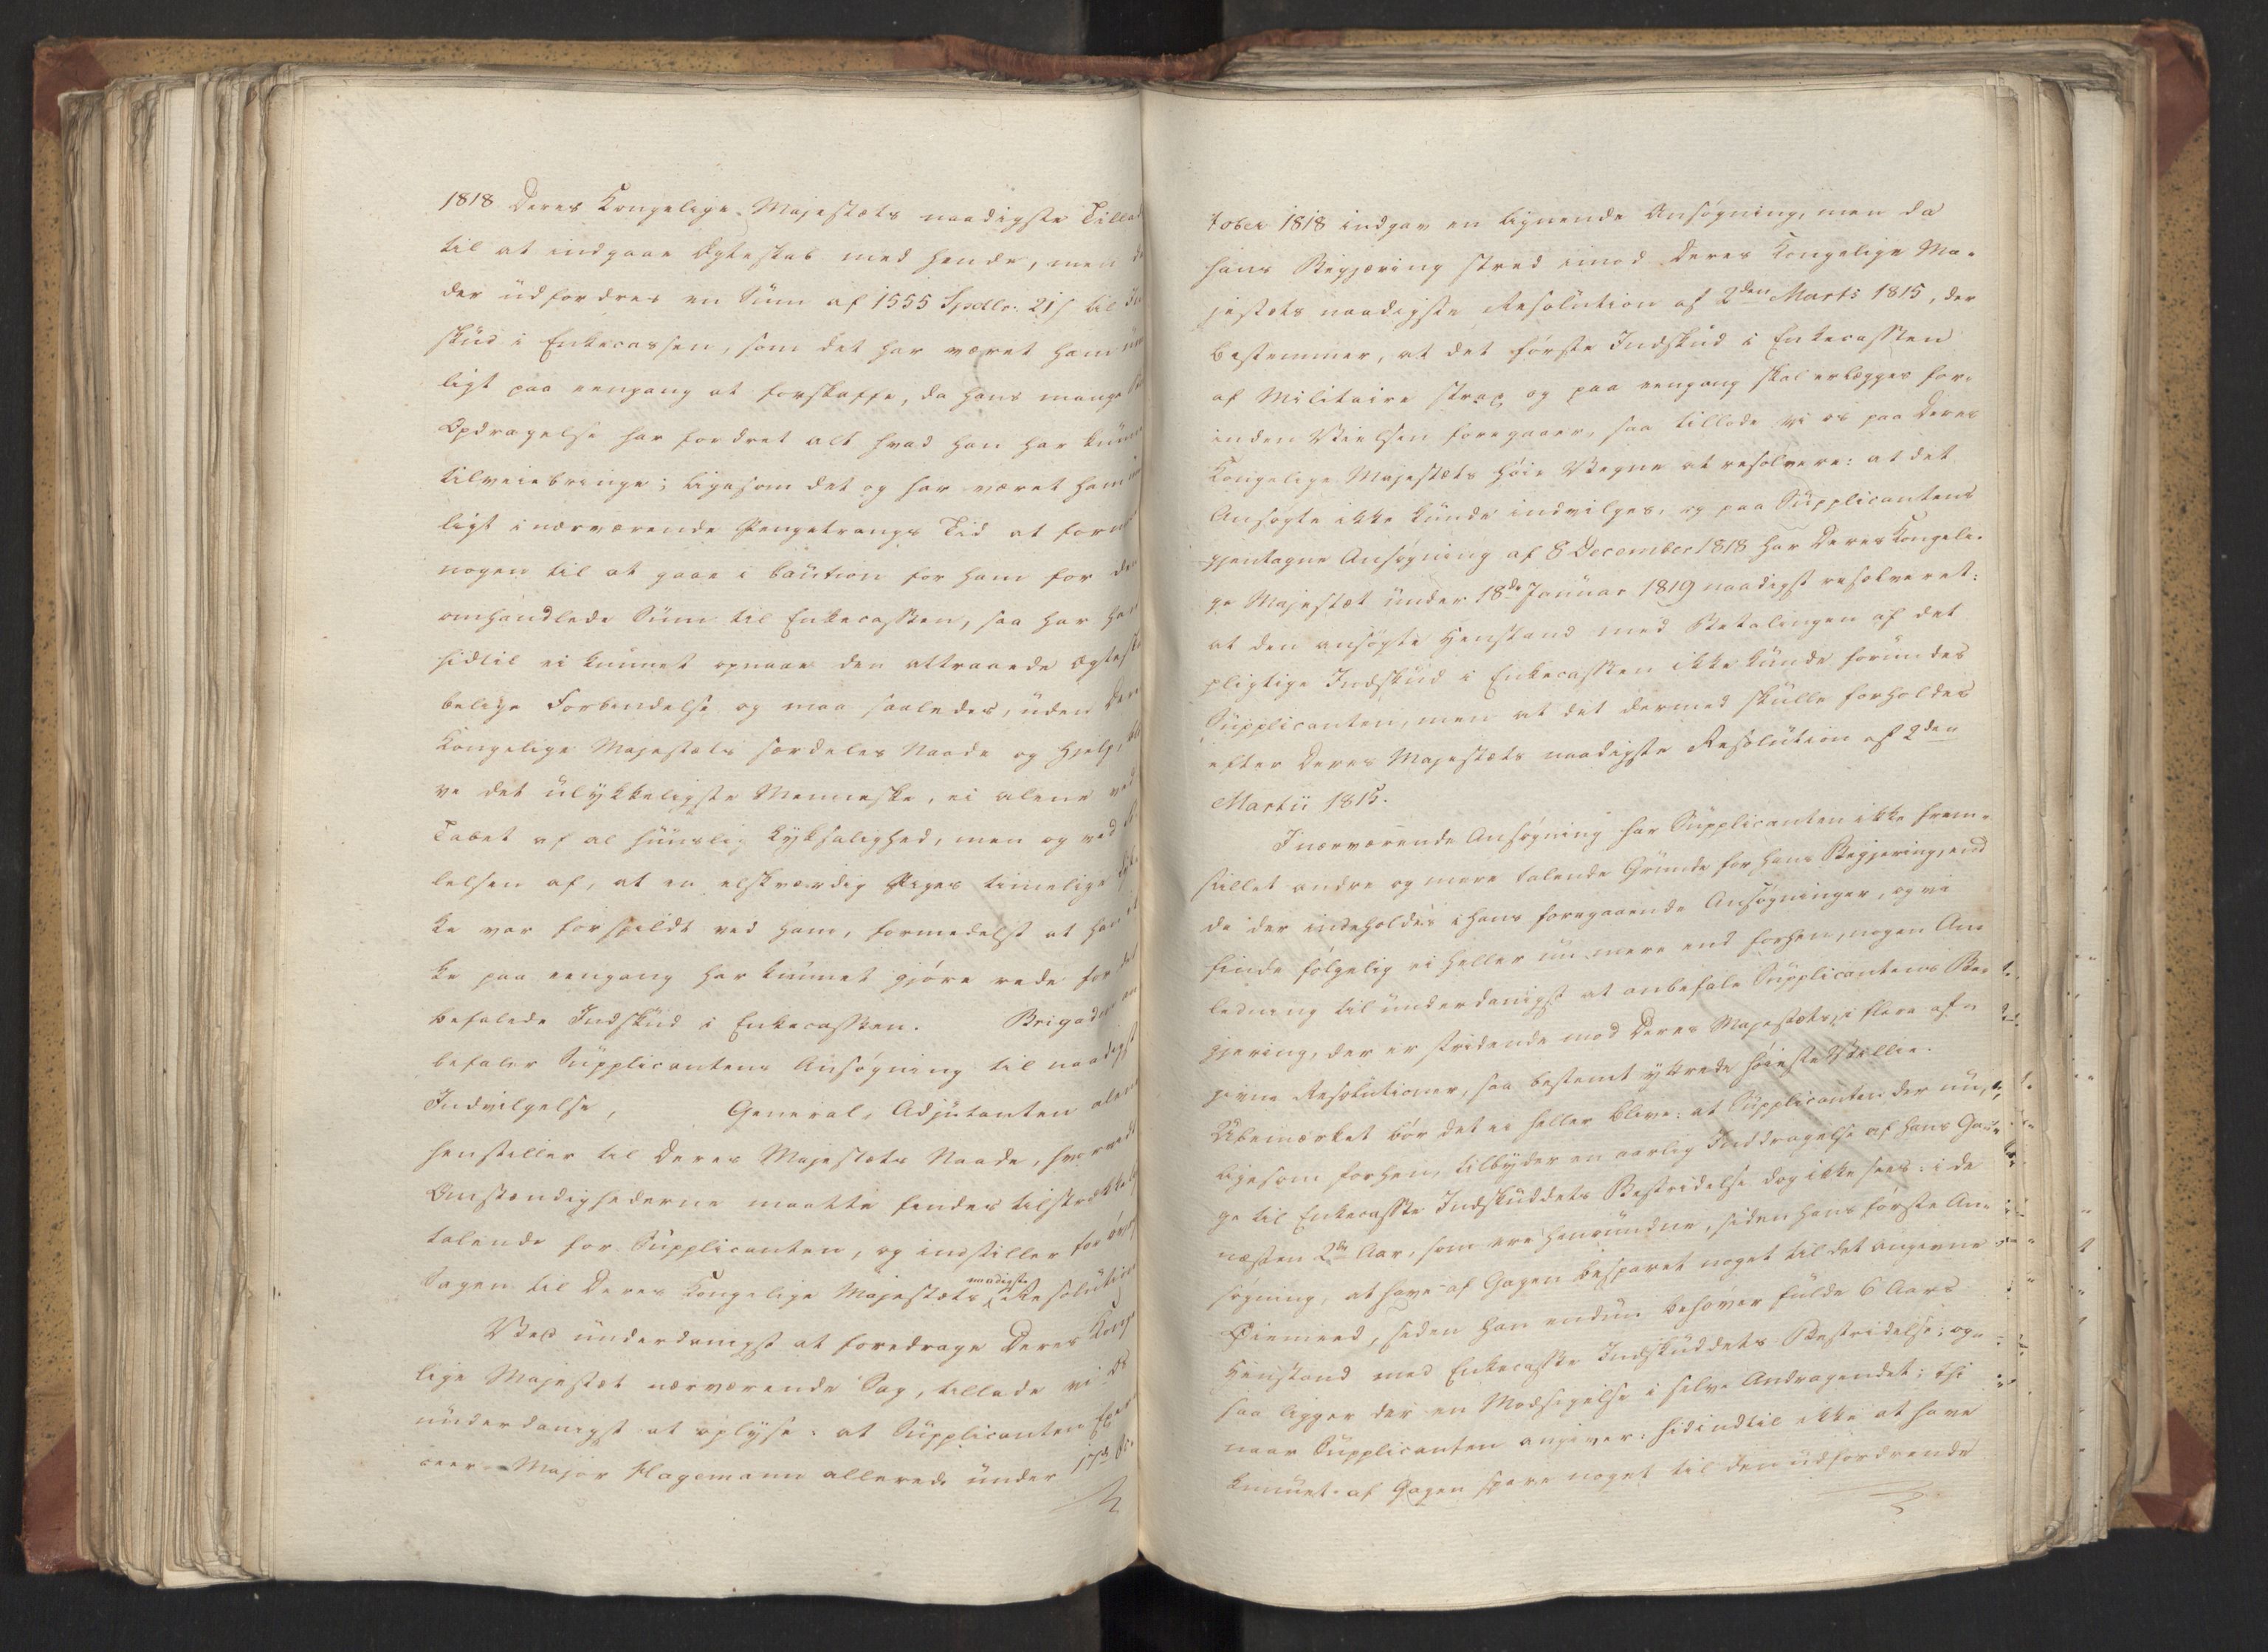 1818 Deres Kongelige Majestæts naadigste Tillad
til at indgaae Ægteskab med hende, men da
der udfordres en Sum af 1555 Spdlr. 21 s til In
skud i Enkecassen, som det har været ham um
ligt paa eengang at forskaffe, da hans mange
Opdragelse har fordret alt hvad han har kun
tilveiebringe; ligesom det og har været ham um
ligt i nærværende Pengetrangs Tid at forma
nogen til at gaae i Caution for ham for den
omhandlede Sum til Enkecassen, saa har han
hidtil ei kunnet opnaae den attraaede Ægteska
belige Forbindelse og maa saaledes, uden Der
Kongelige Majestæts særdeles Naade og Hjelp, bli
ve det ulykkeligste Menneske, ei alene ved
Tabet af al huuslig Lyksalighed, men og ved
lelsen af, at en elskværdig Piges timelige Lyk
ke var forspildt ved ham, formedelst at han ik
ke paa eengang har kunnet gjöre rede for det
befalede Indskud i Enkecassen. Brigaden an
befaler Supplicantens Ansögning til naadigst
Indvilgelse, General-Adjutanten alene
henstiller til Deres Majestæts Naade, hvorvidt
Omstændighederne maatte findes tilstrækkelig
talende for Supplicanten, og indstiller forövrigt
Sagen til Deres Kongelige Majestæts naadigste Resolution
Ved underdanigst at foredrage Deres Konge
lige Majestæt nærværende Sag, tillade vi os
underdanigst at oplyse: at Supplicanten
Major Hagemann allerede under 17de Oc
tober 1818 indgav en lignende Ansögning, men da
hans Begjæring stred imod Deres Kongelige Ma-
jestæts naadigste Resolution af 2den Marts 1815, der
bestemmer, at det förste Indskud i Enkecassen
af Militaire strax og paa eengang skal erlægges for-
inden Vielsen foregaaer, saa tillode vi os paa Deres
Kongelige Majestæts höie Vegne at resolvere: at det
Ansögte ikke kunde indvilges, og paa Supplicantens
gjentagne Ansögning af 8 December 1818 har Deres Kongeli-
ge Majestæt under 18de Januar 1819 naadigst resolveret:
at den ansögte Henstand med Betalingen af det
pligtige Indskud i Enkecassen ikke kunde forundes
Supplicanten, men at det dermed skulle forholdes
efter Deres Majestæts naadigste Resolution af 2den
Martii 1815.
I nærværende Ansögning har Supplicanten ikke frem-
stillet andre og mere talende Grunde for hans Begjæring, end
de der indeholdes i hans foregaaende Ansögninger, og vi
finde fölgelig ei heller nu mere end forhen, nogen An-
ledning til underdanigst at anbefale Supplicantens Be-
gjæring, der er stridende mod Deres Majestæts, i flere af-
givne Resolutioner, saa bestemt yttrede höieste Villie.
Ubemærket bör det ei heller blive: at Supplicanten der nu,
ligesom forhen, tilbyder en aarlig Inddragelse af hans Ga-
ge til Enkecasse Indskuddets Bestridelse dog ikke sees: i de
næsten 2de Aar, som ere henrundne, siden hans förste An-
sögning, at have af Gagen besparet noget til det angivne
Öiemeed, siden han endnu behöver fulde 6 Aars
Henstand med Enkecasse Indskuddets Bestridelse; og
saa ligger der en Modsigelse i selve Andragendet; thi
naar Supplicanten angiver: hidindtil ikke at have
kunnet af Gagen spare noget til den udfordrende